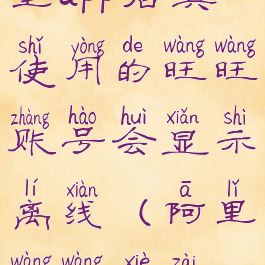 shǐ yòng de wàng wàng
使用的旺旺
zhàng hào huì xiǎn shì
账号会显示
lí xiàn ā lǐ
离线（阿里
wàng wàng xiè zài